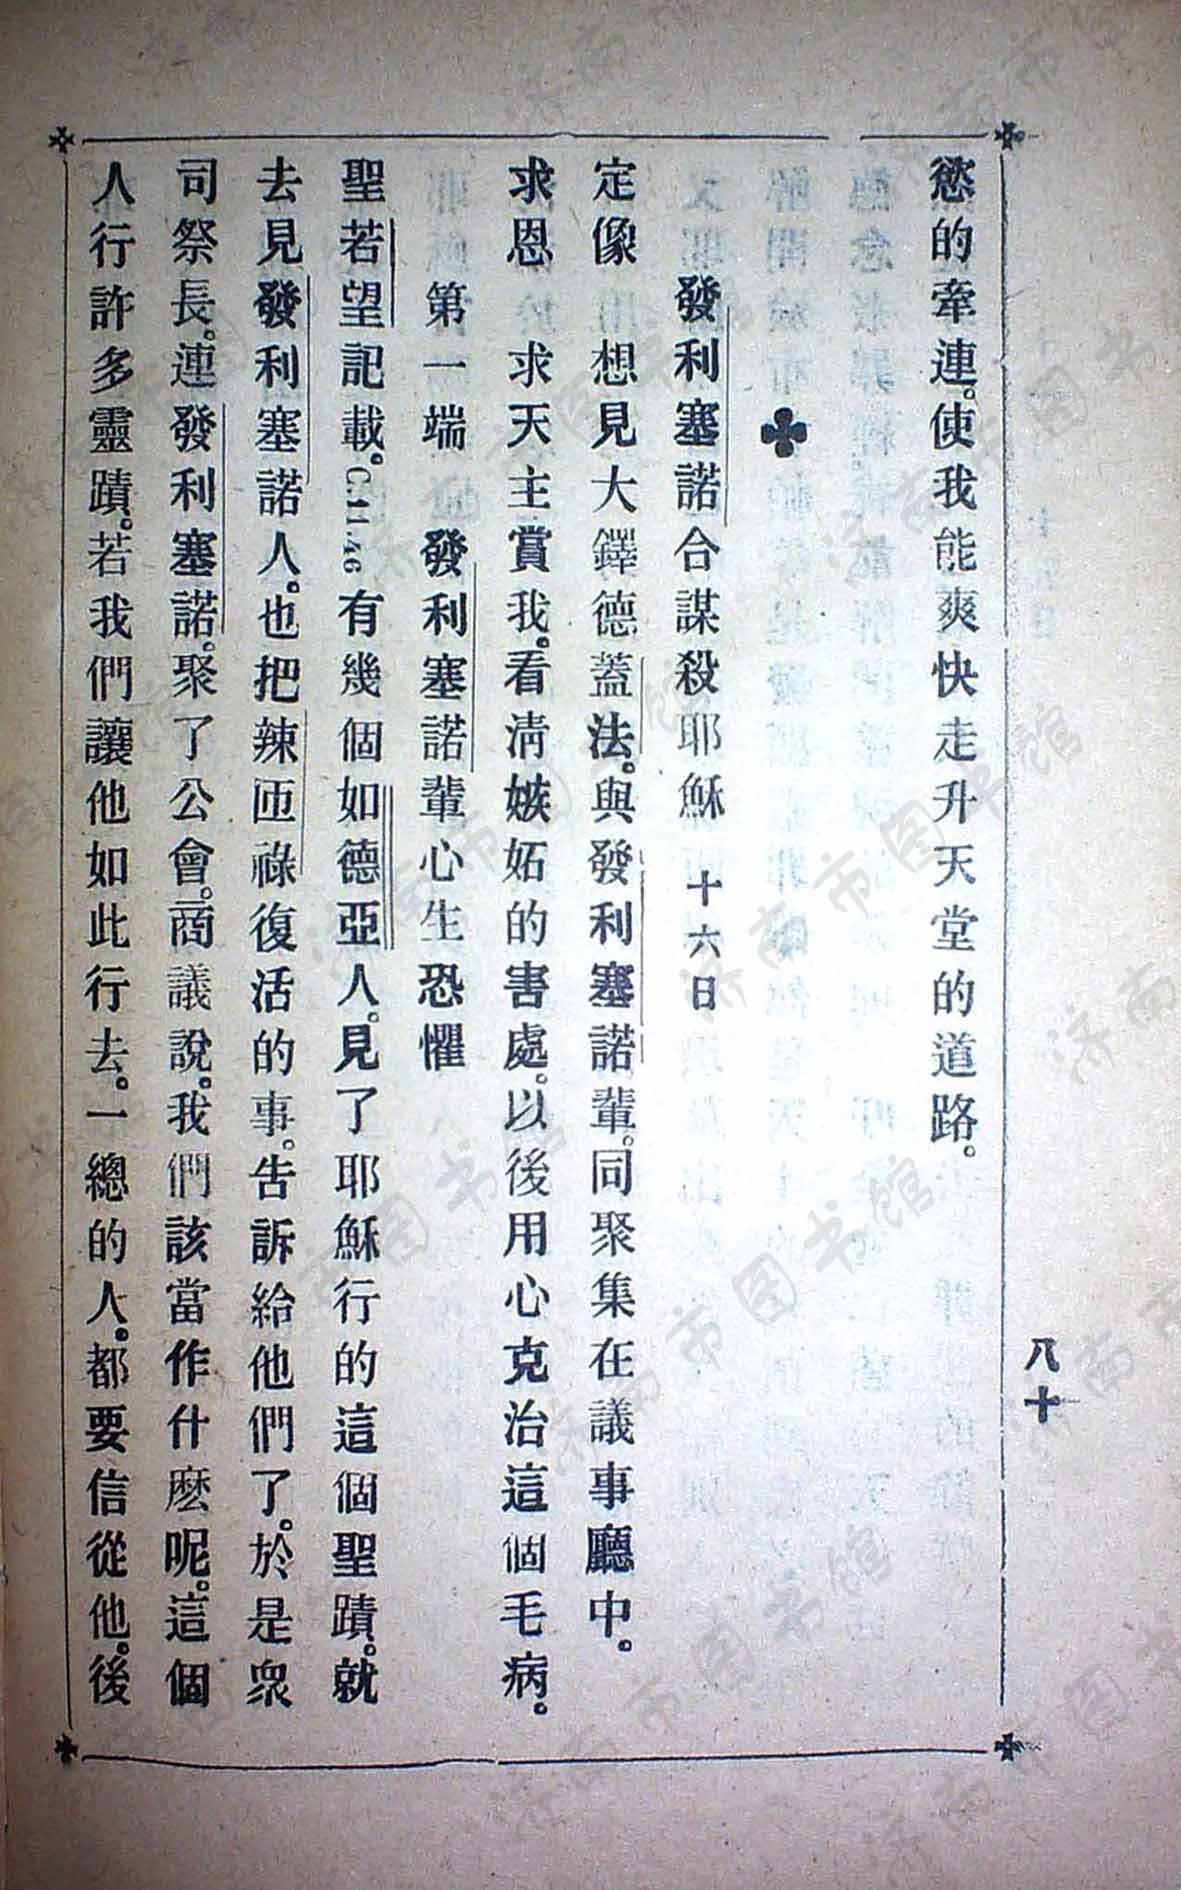 八十
慾的牽連。使我能爽快走升天堂的道路。
發利塞諾合謀殺耶穌 十六日
定像 想見大鐸德蓋法。與發利塞諾輩。同聚集在議事廳中。
求恩 求天主賞我。看淸嫉妬的害處。以後用心克治這個毛病。
第一端 發利塞諾輩心生恐懼
聖若望記載。有幾個如德亞人。見了耶穌行的這個聖蹟。就
去見發利塞諾人。也把辣匝祿復活的事。告訴給他們了。於是衆
司祭長。連發利塞諾。聚了公會。商議說。我們該當作什麽呢。這個
人行許多靈蹟。若我們讓他如此行去。一總的人。都要信從他。後
济南市图书馆